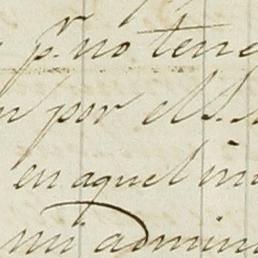 pr. no tene
por el S.
en aquel in
mi admin